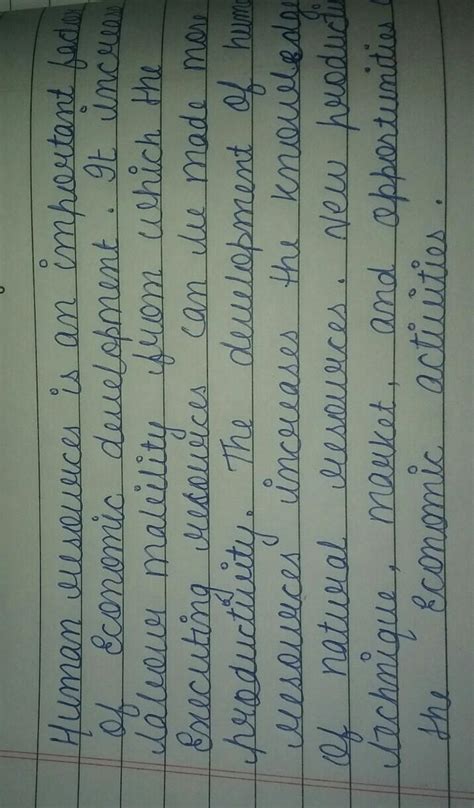 Human resources is an important
of Economic development. It increase
labour mobility from which the
Executing resources can be made more
productivity. The development of human
resources increases the knowledge
of natural resources. New product
technique, market, and opportunities
the Economic activities.